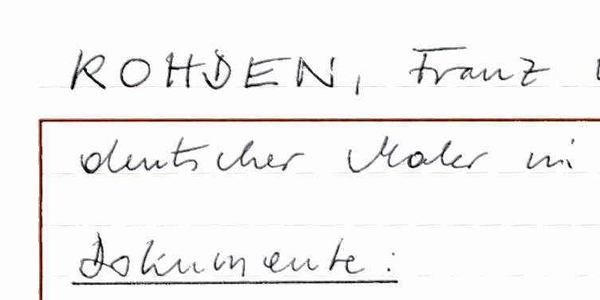 ROHDEN, Franz
deutscher Maler in
Dokumente: